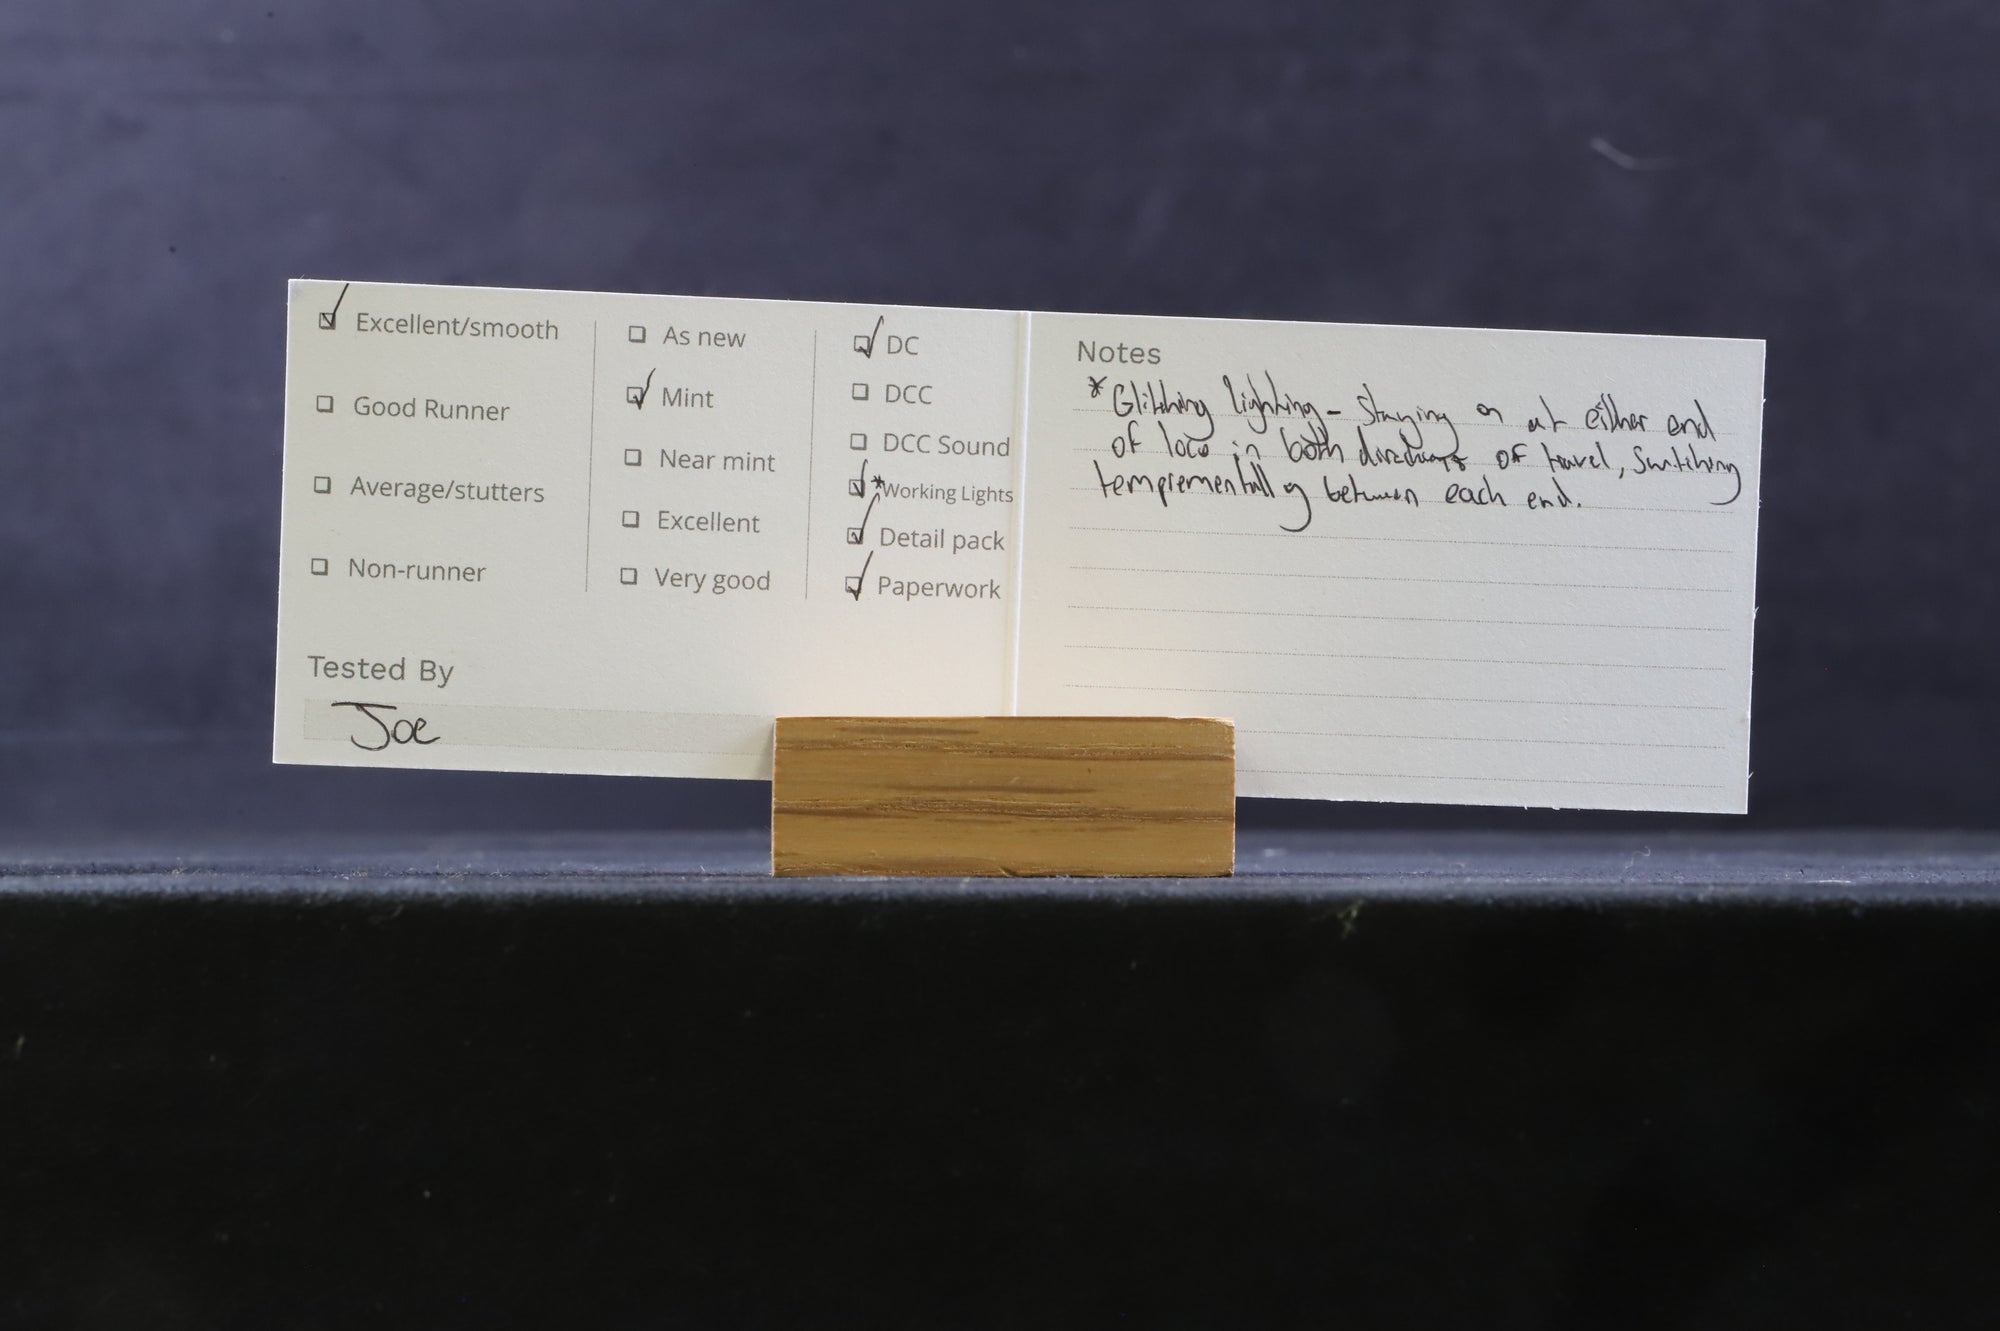 Excellent/smooth
Good Runner
Average/stutters
Non-runner
As new
Mint
Near mint
Excellent
Very good
DC
DCC
DCC Sound
*Working Lights
Detail pack
Paperwork
Tested By
Joe
Notes
*Glitching lighting - staying on at either end
of loco in both directions of travel, switching
tempremently between each end.